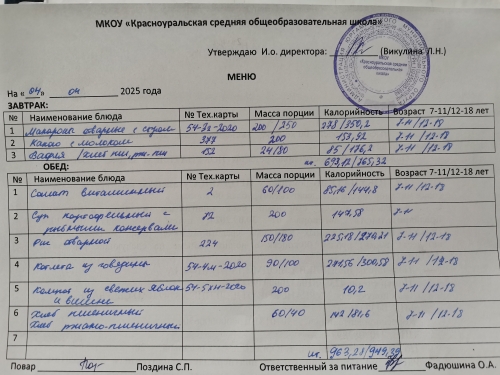 МКОУ «Красноуральская средняя общеобразовательная школа»
Утверждаю И.о. директора: (Викулина Л.Н.)
МЕНЮ
На «04» 04 2025 года
ЗАВТРАК:
№ Наименование блюда № Тех.карты Масса порции Калорийность Возраст 7-11/12-18 лет
1 Макароны отварные с сыром 54-3г-2020 200/250 7-11/12-18
2 Какао с молоком 200 153,92 7-11/12-18
3 Вафля 24/80 7-11/12-18
ОБЕД:
№ Наименование блюда № Тех.карты Масса порции Калорийность Возраст 7-11/12-18 лет
1 Салат витаминный 2 60/100 85,16/144,8 7-11/12-18
2 Суп картофельный с рыбными консервами 200 147,58 7-11
3 Рис отварной 224 150/180 7-11/12-18
4 Котлета из говядины 54-4м-2020 90/100 7-11/12-18
5 Компот из свежих яблок и вишни 200 10,2 7-11/12-18
6 Хлеб пшеничный 60/40 7-11/12-18
Хлеб ржано-пшеничный
7
Повар Поздина С.П. Ответственный за питание Фадюшина О.А.